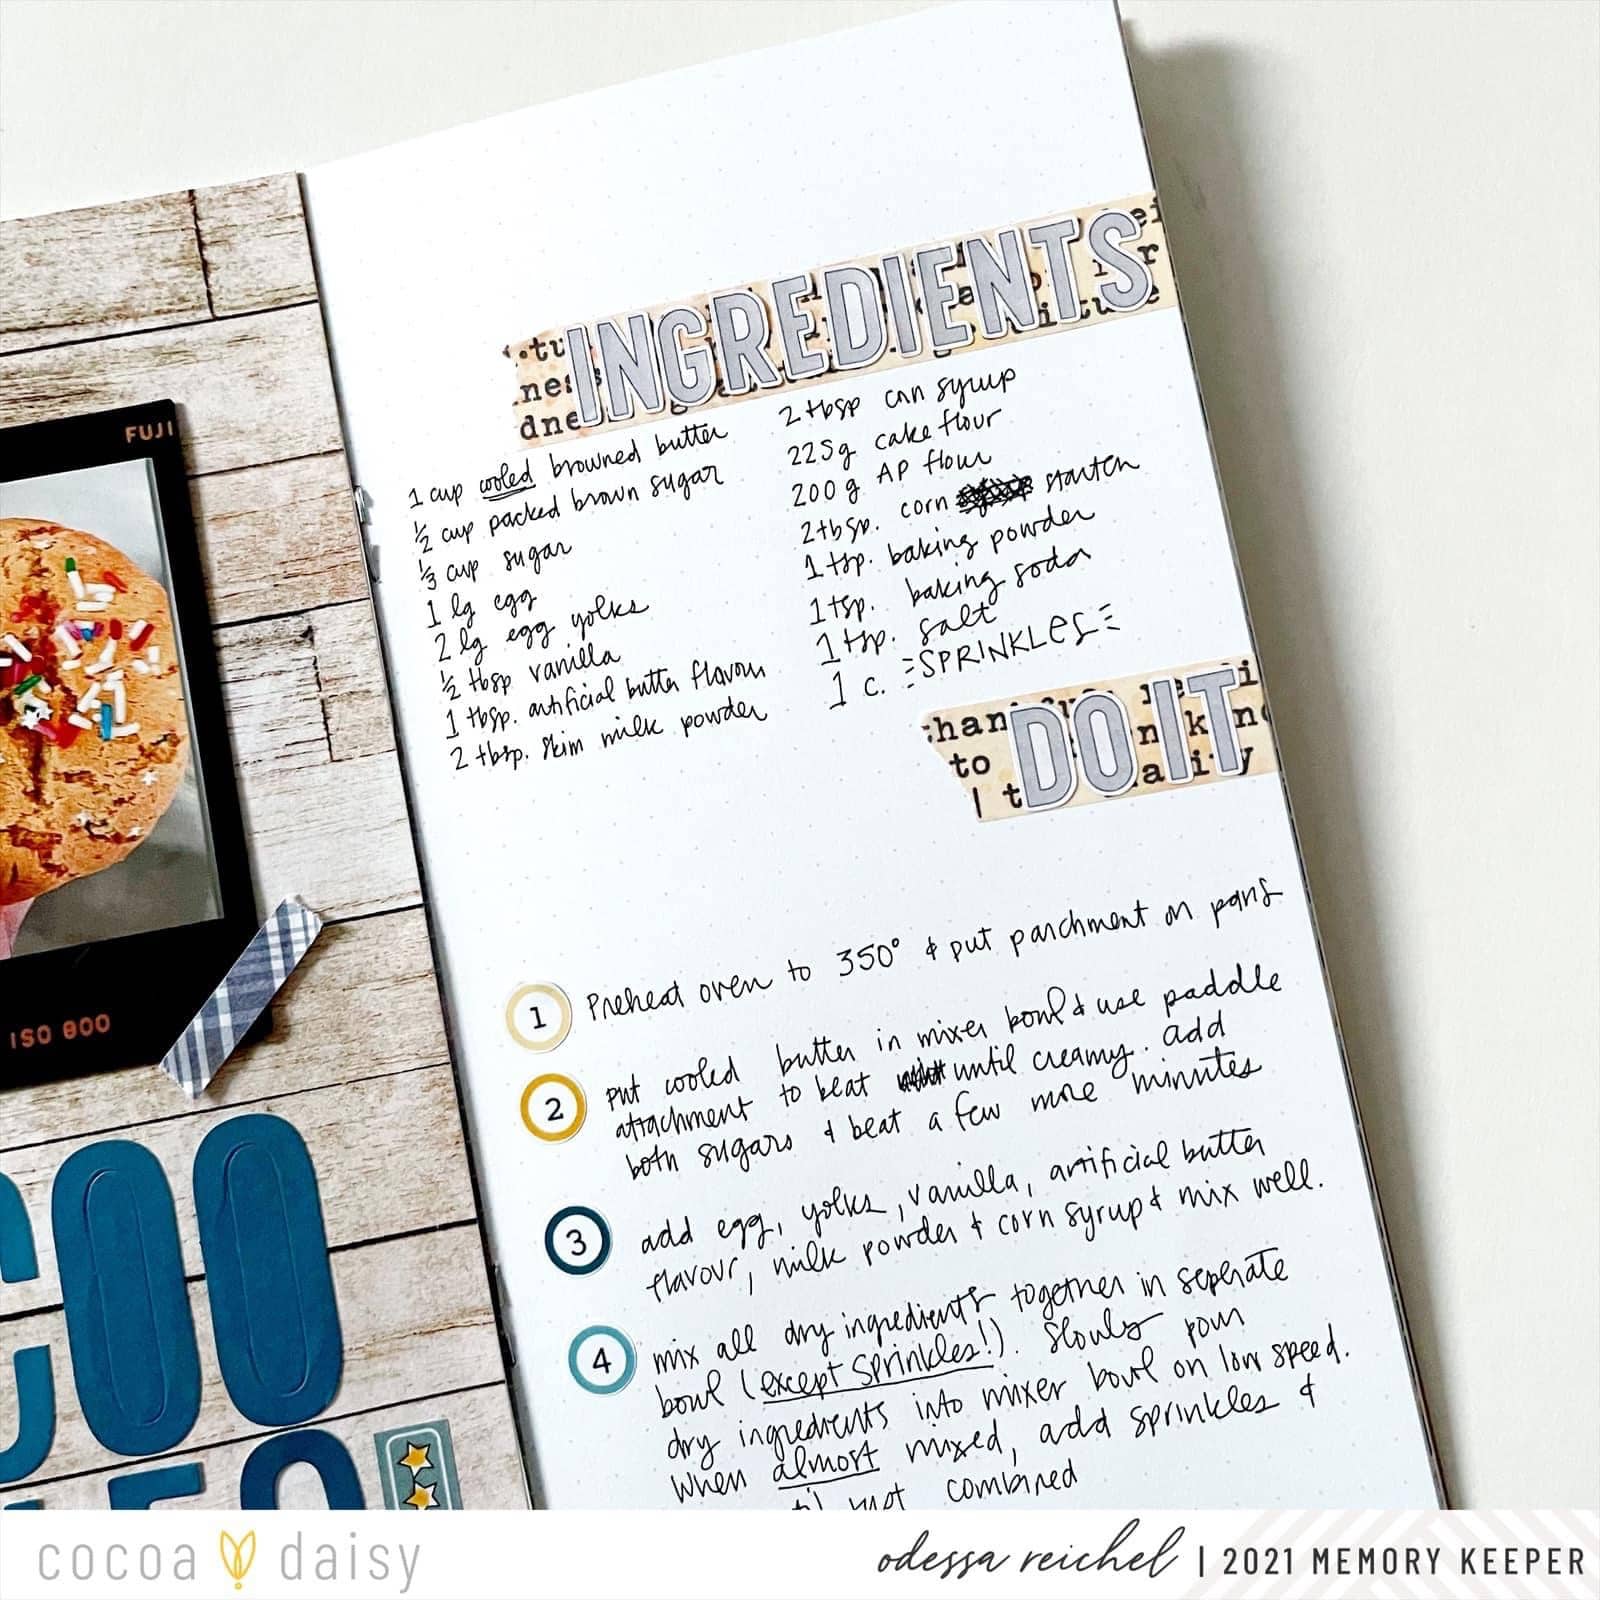 FUJI
ISO 800
COO
INGREDIENTS
1 cup cooled browned butter
½ cup packed brown sugar
⅓ cup sugar
1 lg egg
2 lg egg yolks
½ tbsp vanilla
1 tbsp. artificial butter flavour
2 tbsp. skim milk powder
2 tbsp syrup
225g cake flour
200g AP flour
2 tbsp. corn starch
1 tsp. baking powder
1 tsp. baking soda
1 tsp. salt
1 c. SPRINKLES
DO IT
1 Preheat oven to 350° & put parchment on pans
2 put cooled butter in mixer bowl & use paddle
attachment to beat until creamy. add
both sugars & beat a few more minutes
3 add egg, yolks, vanilla, artificial butter
flavour, milk powder & corn syrup & mix well.
4 mix all dry ingredients together in seperate
bowl (except sprinkles!). Slowly pour
dry ingredients into mixer bowl on low speed.
When almost mixed, add sprinkles &
combined
cocoa daisy
odessa reichel | 2021 MEMORY KEEPER